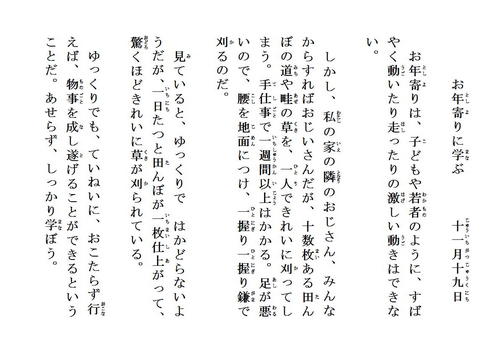 お年寄りに学ぶ　十一月十九日
お年寄りは、子どもや若者のように、すば
やく動いたり走ったりの激しい動きはできな
い。
しかし、私の家の隣のおじさん、みんな
からすればおじいさんだが、十数枚ある田ん
ぼの道や畦の草を、一人できれいに刈ってし
まう。手仕事で一週間以上はかかる。足が悪
いので、腰を地面につけ、一握り一握り鎌で
刈るのだ。
見ていると、ゆっくりで　はかどらないよ
うだが、一日たつと田んぼが一枚仕上がって、
驚くほどきれいに草が刈られている。
ゆっくりでも、ていねいに、おこたらず行
えば、物事を成し遂げることができるという
ことだ。あせらず、しっかり学ぼう。